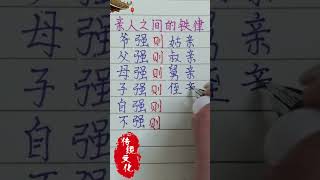 亲人之间的铁律
爷强则姑亲
父强则叔亲
母强则舅亲
子强则侄亲
自强则
不强则
传统文化